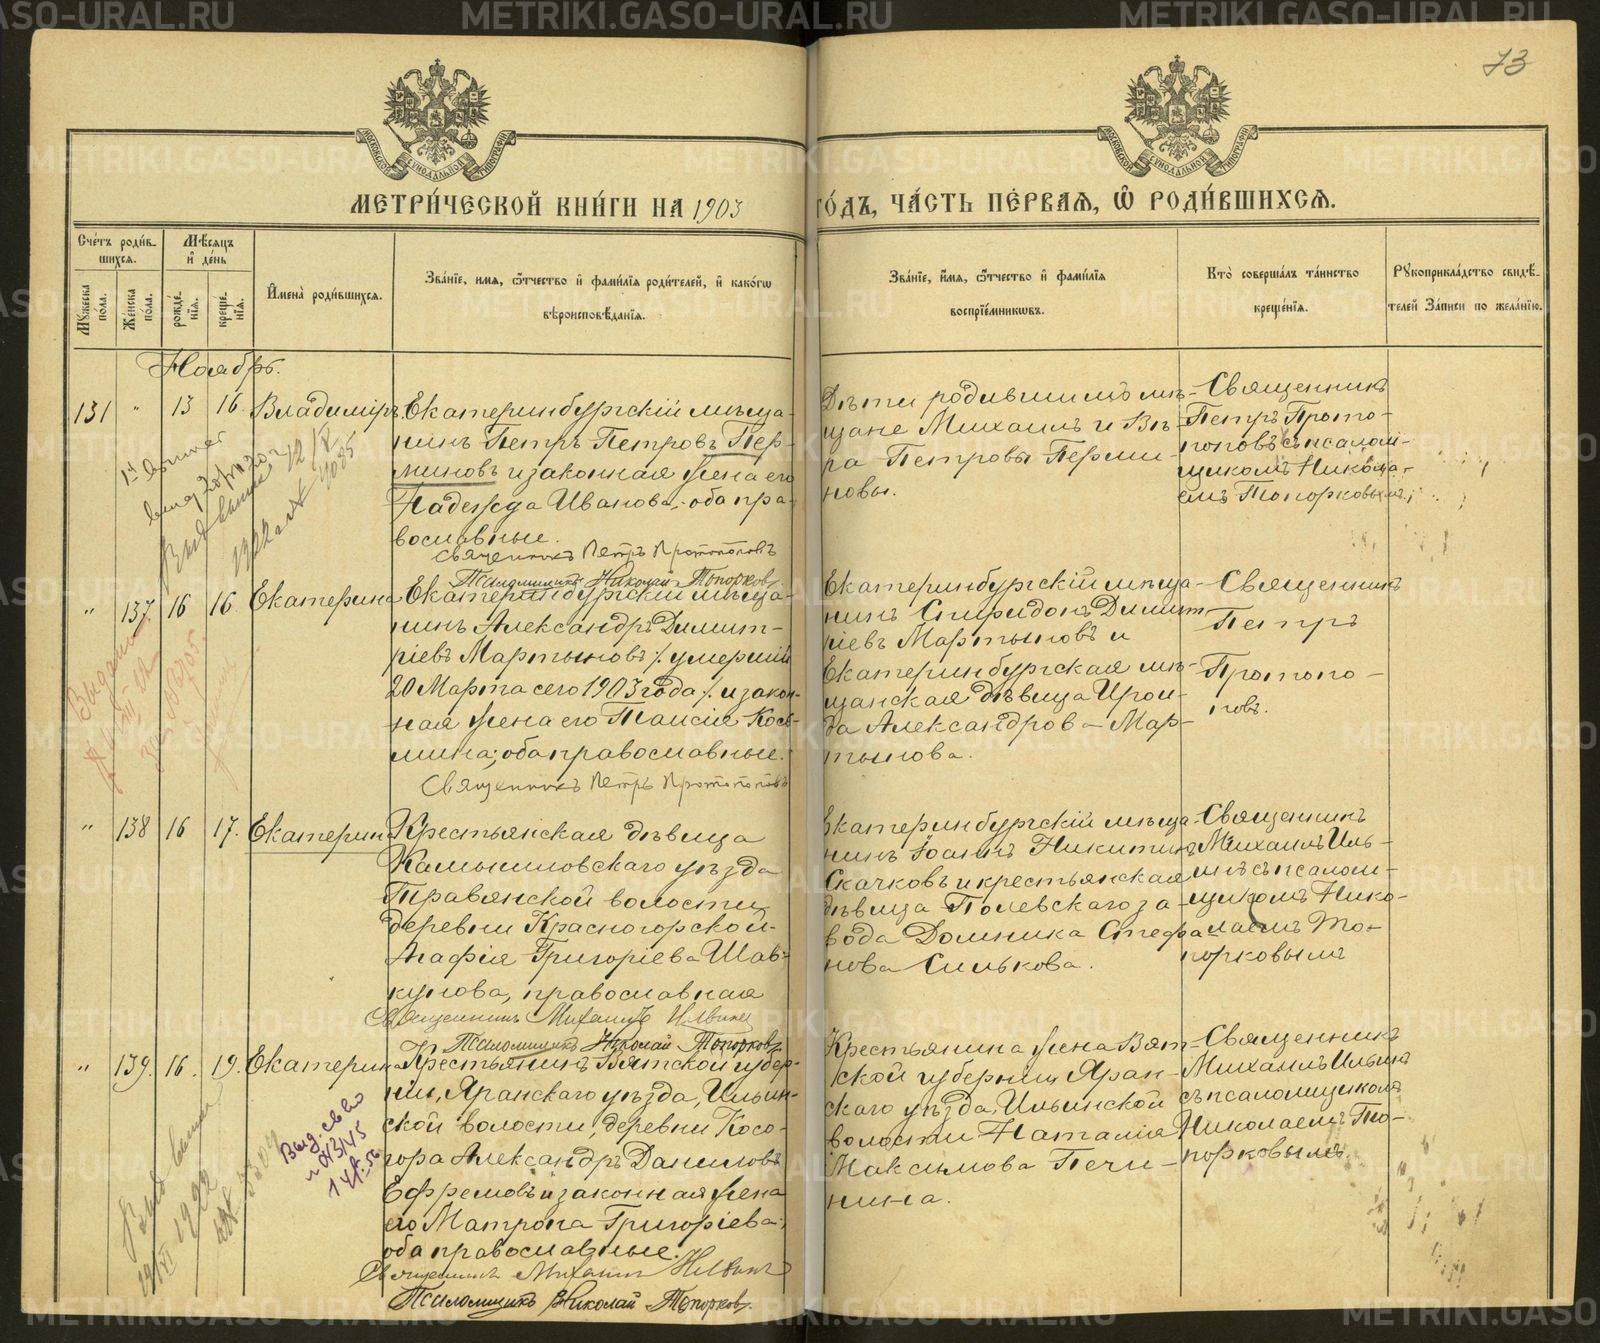 73
МОСКОВСКОЙ СѴНОДАЛЬНОЙ ТИПОГРАФІИ
МОСКОВСКОЙ СѴНОДАЛЬНОЙ ТИПОГРАФІИ
МЕТРИ́ЧЕСКОЙ КНИ́ГИ НА 1903 ГО́ДЪ, ЧА́СТЬ ПЕ́РВАЯ, Ѽ РОДИ́ВШИХСЯ.
Сче́тъ роди́в-
шихся.
Мѣ́сяцъ
и҆ де́нь
Мꙋ́жеска по́ла.
Же́нска по́ла.
рожде́нїя.
креще́нїя.
И҆мена̀ роди́вшихся.
Зва́нїе, имя, ѻ҆́тчество и҆ фами́лїя роди́телей, и҆ како́гѡ
вѣроисповѣ́данїя.
Зва́нїе, и҆́мя, ѻ҆́тчество и҆ фами́лїя
воспрїе́мникѡвъ.
Кто̀ соверша́лъ та́инство
креще́нїя.
Рꙋкоприкла́дство свидѣ́-
телей за́писи по жела́нїю.
Ноябрь.
131 " 13 16. Владиміръ
Екатеринбургскій мѣща-
нинъ Петръ Петровъ Пер-
миновъ и законная жена его
Надежда Иванова, оба пра-
вославные.
Священникъ Петръ Протопоповъ
Псаломщикъ Николай Топорковъ
Дѣти родившихъ мѣ-
щане Михаилъ и Вѣ-
ра Петровы Перми-
новы.
Священникъ
Петръ Прото-
поповъ съ псалом-
щикомъ Никола-
емъ Топорковымъ
" 137 16 16 Екатерина
Екатеринбургскій мѣща-
нинъ Александръ Димит-
ріевъ Мартыновъ /умершій
20 Марта сего 1903 года/ и закон-
ная жена его Таисія Козь-
мина; оба православные.
Священникъ Петръ Протопоповъ
Екатеринбургскій мѣща-
нинъ Спиридонъ Димит
ріевъ Мартыновъ и
Екатеринбургская мѣ-
щанская дѣвица Ирои-
да Александрова Мар-
тынова.
Священникъ
Петръ
Протопо-
повъ.
" 138 16 17. Екатерина
Крестьянская дѣвица
Камышловскаго уѣзда
Травянской волости,
деревни Красногорской
Агафія Григоріева Шав-
кунова, православная
Священникъ Михаилъ Ильинъ
Псаломщикъ Николай Топорковъ
Екатеринбургскій мѣща-
нинъ Іоаннъ Никитинъ
Скачковъ и крестьянская
дѣвица Полевскаго за-
вода Домника Стефа-
нова Силькова.
Священникъ
Михаилъ Иль-
инъ съ псалом-
щикомъ Нико-
лаемъ То-
порковымъ
" 139. 16 19. Екатерина
Крестьянинъ Вятской губер-
ніи, Яранскаго уѣзда, Ильин-
ской волости, деревни Косо-
гора Александръ Даниловъ
Ефремовъ и законная жена
его Матрона Григоріева;
оба православные.
Священникъ Михаилъ Ильинъ
Псаломщикъ Николай Топорковъ.
Крестьянина жена Вят-
ской губерніи, Яран-
скаго уѣзда, Ильинской
волости Наталія
Максимова Печи-
нина.
Священникъ
Михаилъ Ильинъ
съ псаломщикомъ
Николаемъ То-
порковымъ